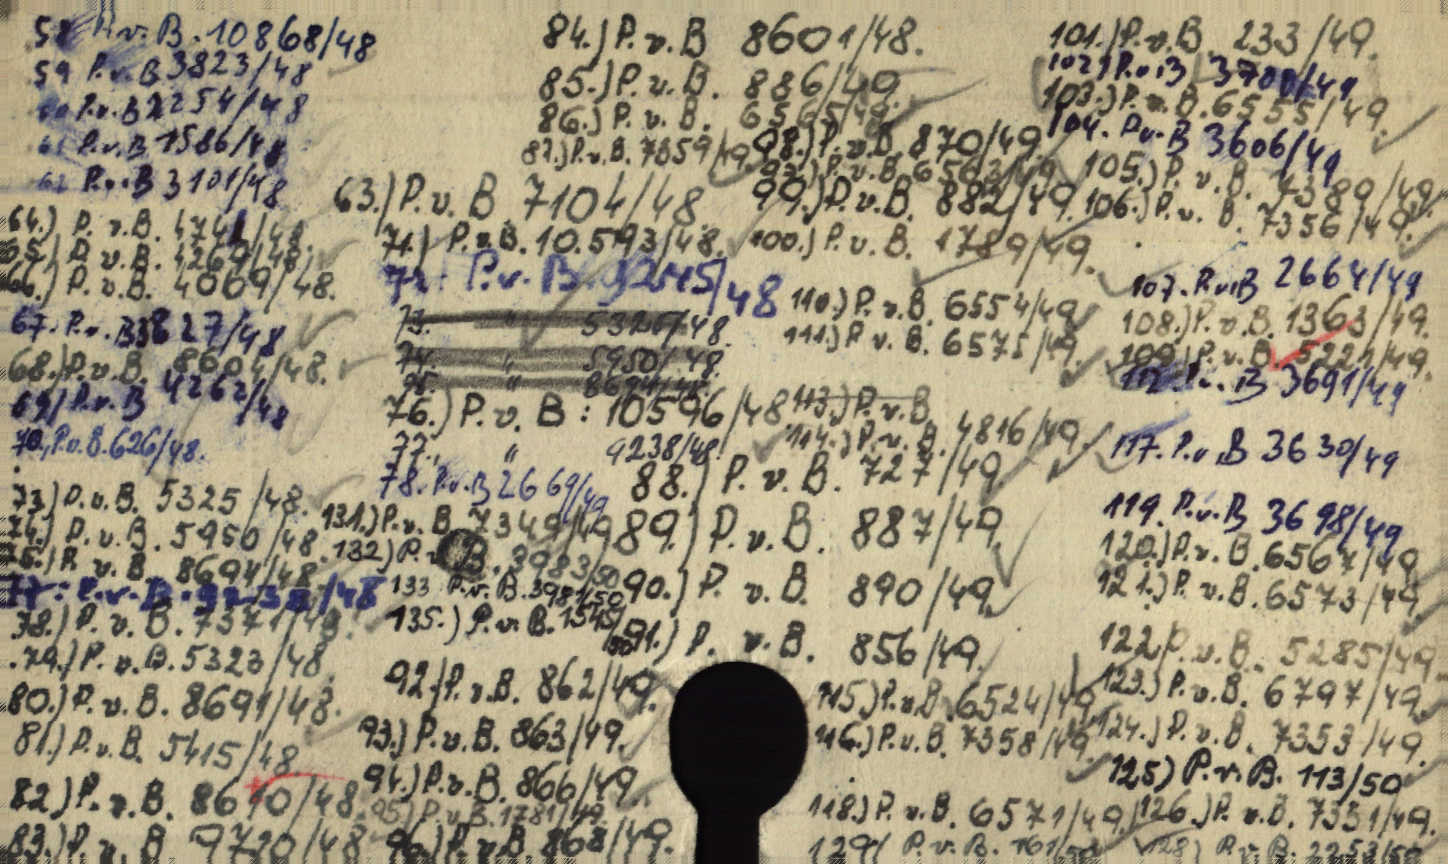 58 P.v.B. 10868/48
59 P.v.B 3823/48
60 P.v.B 2254/48
61 P.v.B 1586/48
62 P.v.B 3101/48
63.) P.v.B 7104/48
64.) P.v.B. 4741/48.
65.) P.v.B. 4269/48.
66.) P.v.B. 4069/48.
67. P.v.B 3827/48
68.) P.v.B. 8604/48.
69/ P.v.B 4262/48
70, P.v.B. 626/48.
73.) P.v.B. 5325/48.
74.) P.v.B. 5950/48.
75.) P.v.B. 8694/48.
77. P.v.B. /48
78.) P.v.B. 7371/48.
79.) P.v.B. 5323/48.
80.) P.v.B. 8691/48.
81.) P.v.B. 5415/48.
82.) P.v.B. 8610/48.
83.) P.v.B 9720/48
71.) P.v.B. 10.593/48.
72. P.v.B. 9245/48
73. " /48.
74. " 5950/48.
75. " 8694/48.
76.) P.v.B: 10596/48
77. " 9238/48.
78. P.v.B 2669/49
131.) P.v.B. 7349/49
132) P.v.B. 3983/50
133 P.v.B. 3981/50
135.) P.v.B. 1545/50
92.) P.v.B. 862/49.
93.) P.v.B. 863/49.
94.) P.v.B. 866/49.
95.) P.v.B. 1781/49.
96.) P.v.B 868/49.
84.) P.v.B 8601/48.
85.) P.v.B. 886/49.
86.) P.v.B. 6565/49.
87.) P.v.B. 7359/49.
88.) P.v.B. 727/49.
89.) P.v.B. 887/49.
90.) P.v.B 890/49.
91.) P.v.B. 856/49.
98.) P.v.B. 870/49.
97.) P.v.B. 6563/49
99.) P.v.B. 882/49.
100.) P.v.B. 1789/49.
110.) P.v.B. 6554/49
111.) P.v.B. 6575/49.
113.) P.v.B
114.) P.v.B. 4816/49.
115.) P.v.B. 6524/49
116.) P.v.B. 7358/49.
118.) P.v.B. 6571/49.
129/ P.v.B. 761/50
101.) P.v.B. 233/49.
102.) P.v.B 3700/49
103.) P.v.B. 6555/49.
104. P.v.B 3606/49
105.) P.v.B. 7389/49.
106.) P.v.B. 7356/49.
107. P.v.B 2664/49
108.) P.v.B. 1363/49.
109.) P.v.B 5221/49.
112. P.v.B 3691/49
117. P.v.B 3630/49
119. P.v.B 3698/49
120.) P.v.B. 6567/49.
121.) P.v.B. 6573/49.
122.) P.v.B. 5285/49.
123.) P.v.B. 6797/49.
124.) P.v.B. 7353/49.
125) P.v.B. 113/50
126.) P.v.B. 7351/49.
128) P.v.B. 2253/50